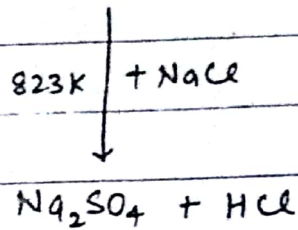 823K + NaCl
Na₂SO₄ + HCl